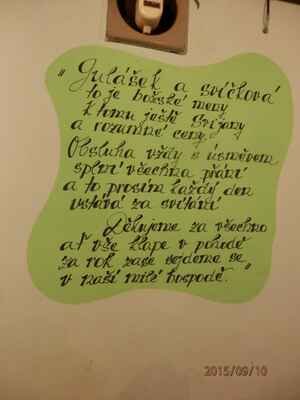 "Gulášek a svíčková
to je božské menu
k tomu ještě Svijany
a rozumné ceny.
Obsluha vždy s úsměvem
splní všechna přání
a to prosím každý den
vstává za svítání
Děkujeme za všechno
ať vše klape v pohodě
za rok zase sejdeme se
v naší milé hospodě."
2015/09/10